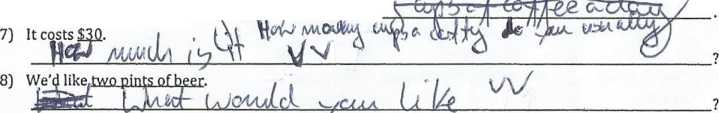 cups of coffee a day
7) It costs $30. How many cups a do you usually
How much is it ?
8) We'd like two pints of beer.
What would you like ?